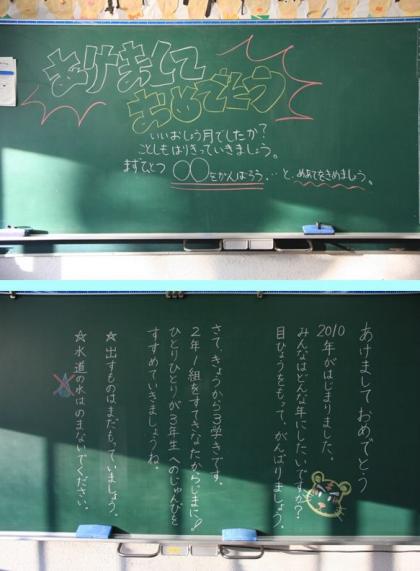 あけまして
おめでとう
いいおしょう月でしたか？
ことしもはりきっていきましょう。
まずひとつ ○○をがんばろう…と、めあてをきめましょう。
あけまして おめでとう
2010年がはじまりました。
みんなはどんな年にしたいですか？
目ひょうをもって、がんばりましょう。
さて、きょうから3学きです。
2年1組をすてきなたからじまに！
ひとりひとりが3年生へのじゅんびを
すすめていきましょうね。
☆出すものはまだもっていましょう。
☆水道の水はのまないでください。